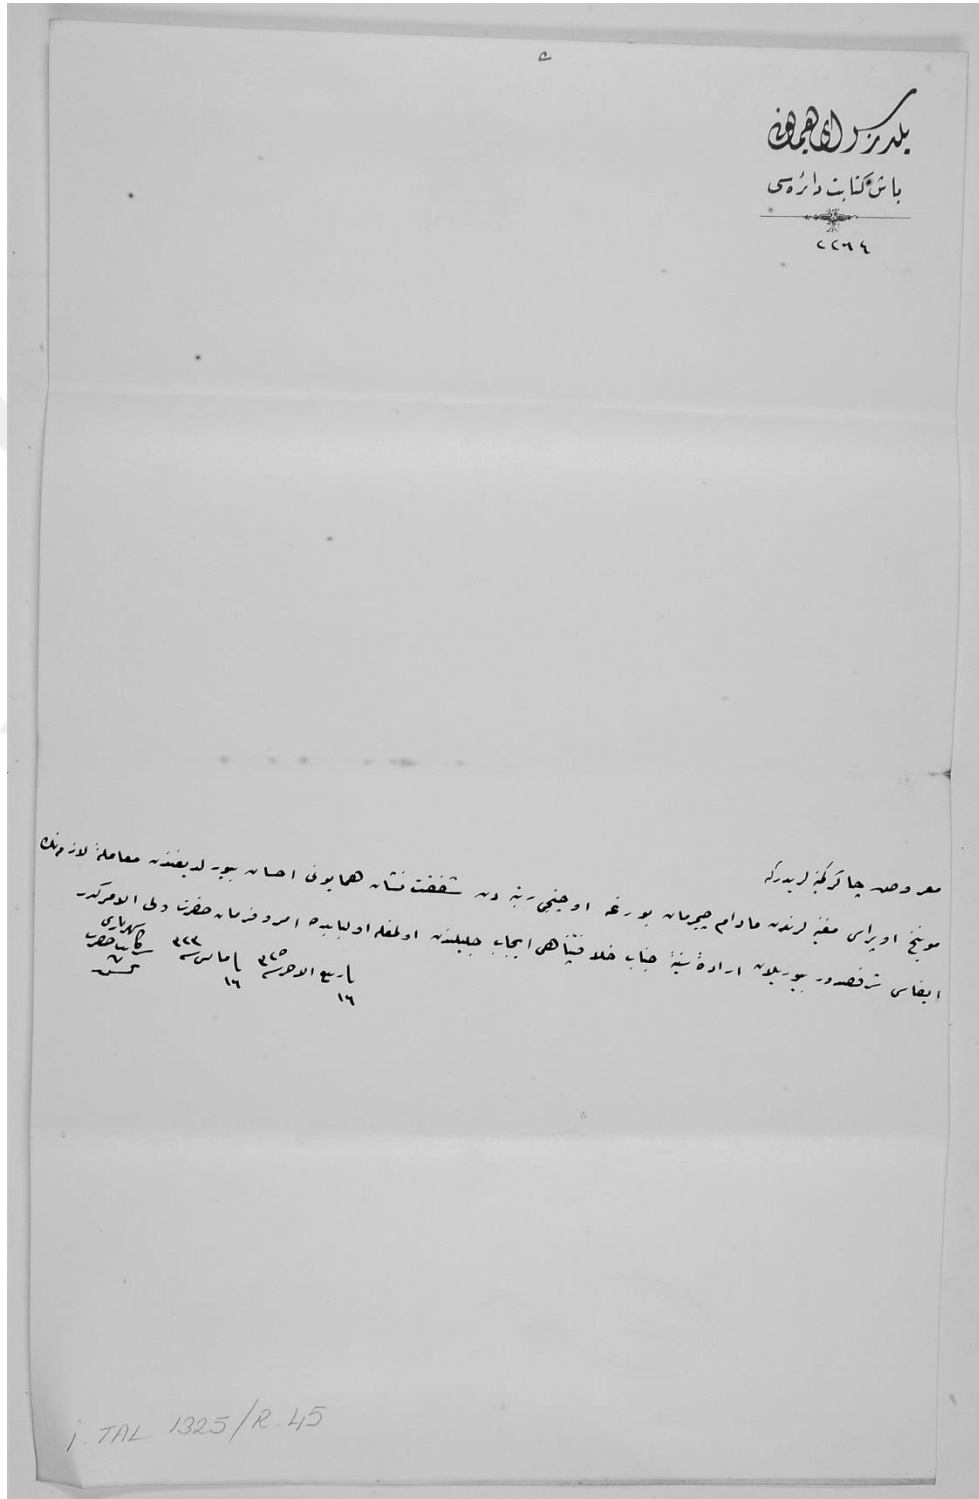 یلدیز سرای همایونی
باش کتابت دائره‌سی
٢٢٦٤
معروض چاکر کمینه لریدرکه
مونیخ اوپراسی مغنیه لرندن مادام بورغه اوچنجی رتبه دن شفقت نشان همایونی احسان بیورلدیغندن معاملهٔ لازمه نك
ایفاسی شرفصدور بیوریلان ارادهٔ سنیهٔ جناب خلافتپناهی ایجاب جلیلندن اولمغله اولبابده امر و فرمان حضرت ولی الامرکدر
١٦ ربیع الاخر سنه ٣٢٥ ١٦ مایس سنه ٣٢٣
سرکاتب حضرت شهریاری
تحسین
İ. TAL 1325/R-45